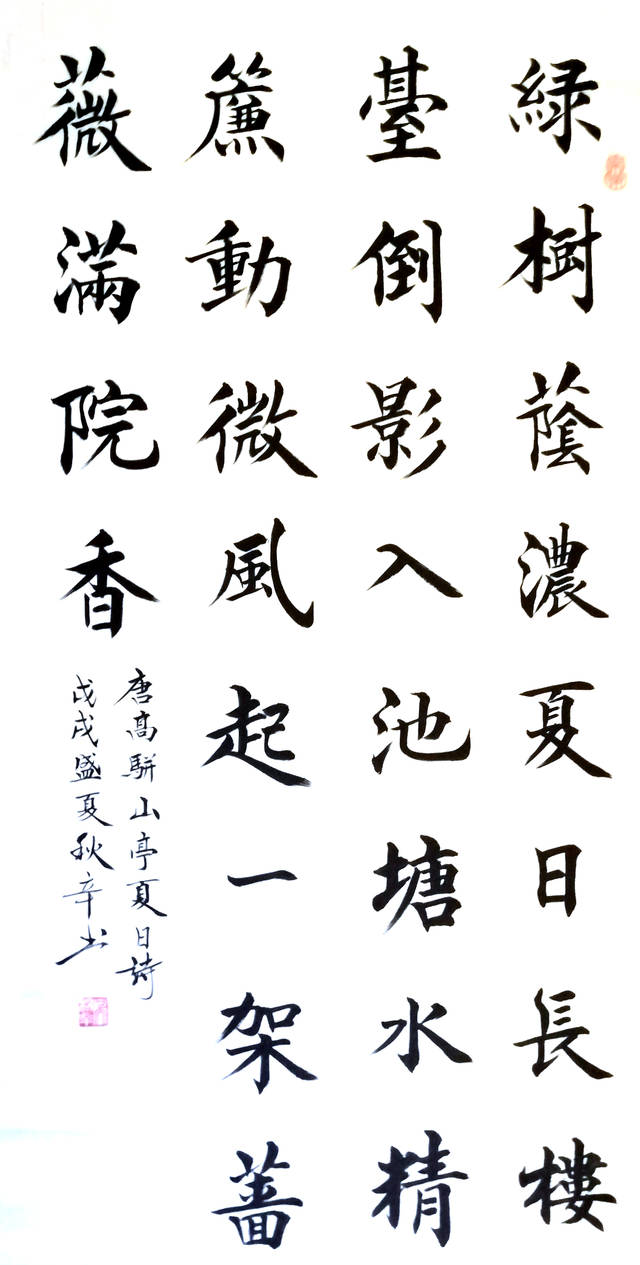 綠樹蔭濃夏日長樓
臺倒影入池塘水精
簾動微風起一架薔
薇滿院香
唐高駢山亭夏日詩
戊戌盛夏秋辛书